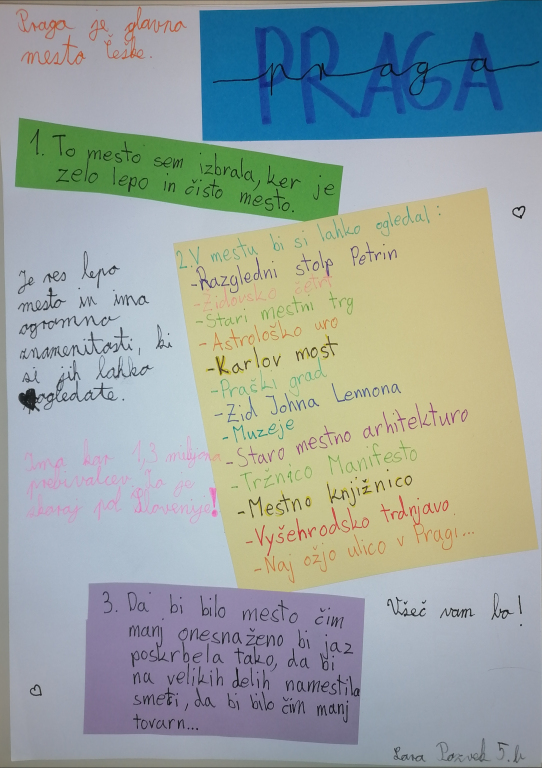 Praga je glavno
mesto Češke.
PRAGA
praga
1. To mesto sem izbrala, ker je
zelo lepo in čisto mesto.
2. V mestu bi si lahko ogledal:
-Razgledni stolp Petrin
-Židovsko četrt
-Stari mestni trg
-Astrološko uro
-Karlov most
-Prački grad
-Zid Johna Lennona
-Muzeje
-Staro mestno arhitekturo
-Tržnico Manifesto
-Mestno knjižnico
-Vyšehrodsko trdnjavo
-Naj ožjo ulico v Pragi...
Je res lepo
mesto in ima
ogromno
znamenitosti, ki
si jih lahko
ogledate.
Ima kar 1,3 milijona
prebivalcev. To je
skoraj pol Slovenije!
3. Da bi bilo mesto čim
manj onesnaženo bi jaz
poskrbela tako, da bi
na velikih delih namestila
smeti, da bi bilo čim manj
tovarn...
Všeč vam bo!
Lara 5.b